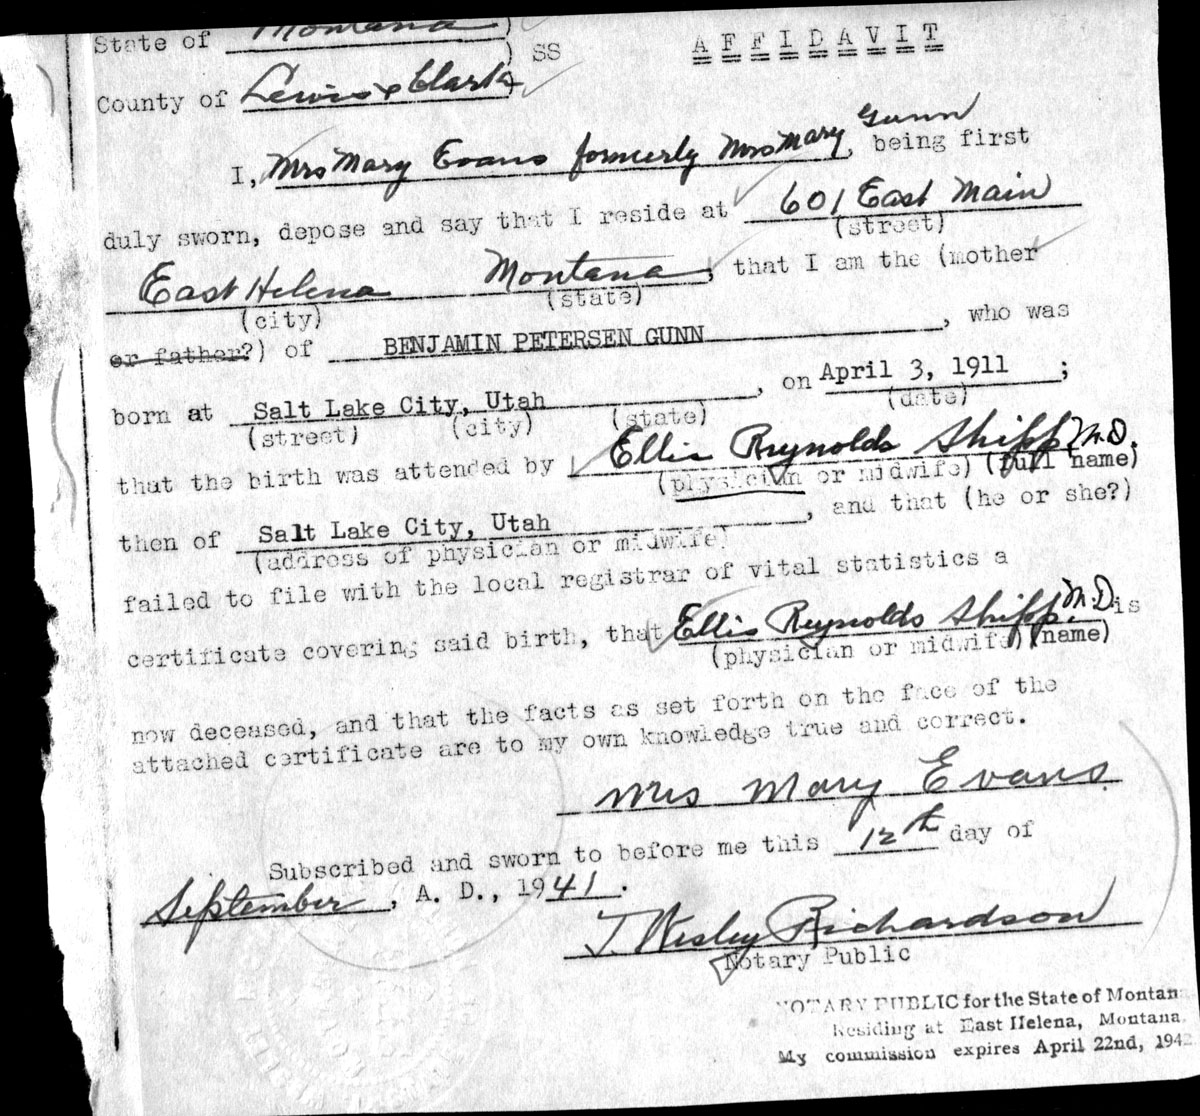 State of Montana )
) SS AFFIDAVIT
County of Lewis & Clark )
I, Mrs Mary Evans formerly Mrs Mary Gunn, being first
duly sworn, depose and say that I reside at 601 East Main
(street)
East Helena Montana, that I am the (mother
(city) (state)
or father?) of BENJAMIN PETERSEN GUNN, who was
born at Salt Lake City, Utah, on April 3, 1911;
(street) (city) (state) (date)
that the birth was attended by Ellis Reynolds Shipp M.D.
(physician or midwife) (full name)
then of Salt Lake City, Utah, and that (he or she?)
(address of physician or midwife)
failed to file with the local registrar of vital statistics a
certificate covering said birth, that Ellis Reynolds Shipp M.D. is
(physician or midwife) (name)
now deceased, and that the facts as set forth on the face of the
attached certificate are to my own knowledge true and correct.
Mrs Mary Evans
Subscribed and sworn to before me this 12th day of
September, A. D., 1941.
J. Wesley Richardson
Notary Public
NOTARY PUBLIC for the State of Montana
Residing at East Helena, Montana.
My commission expires April 22nd, 1942